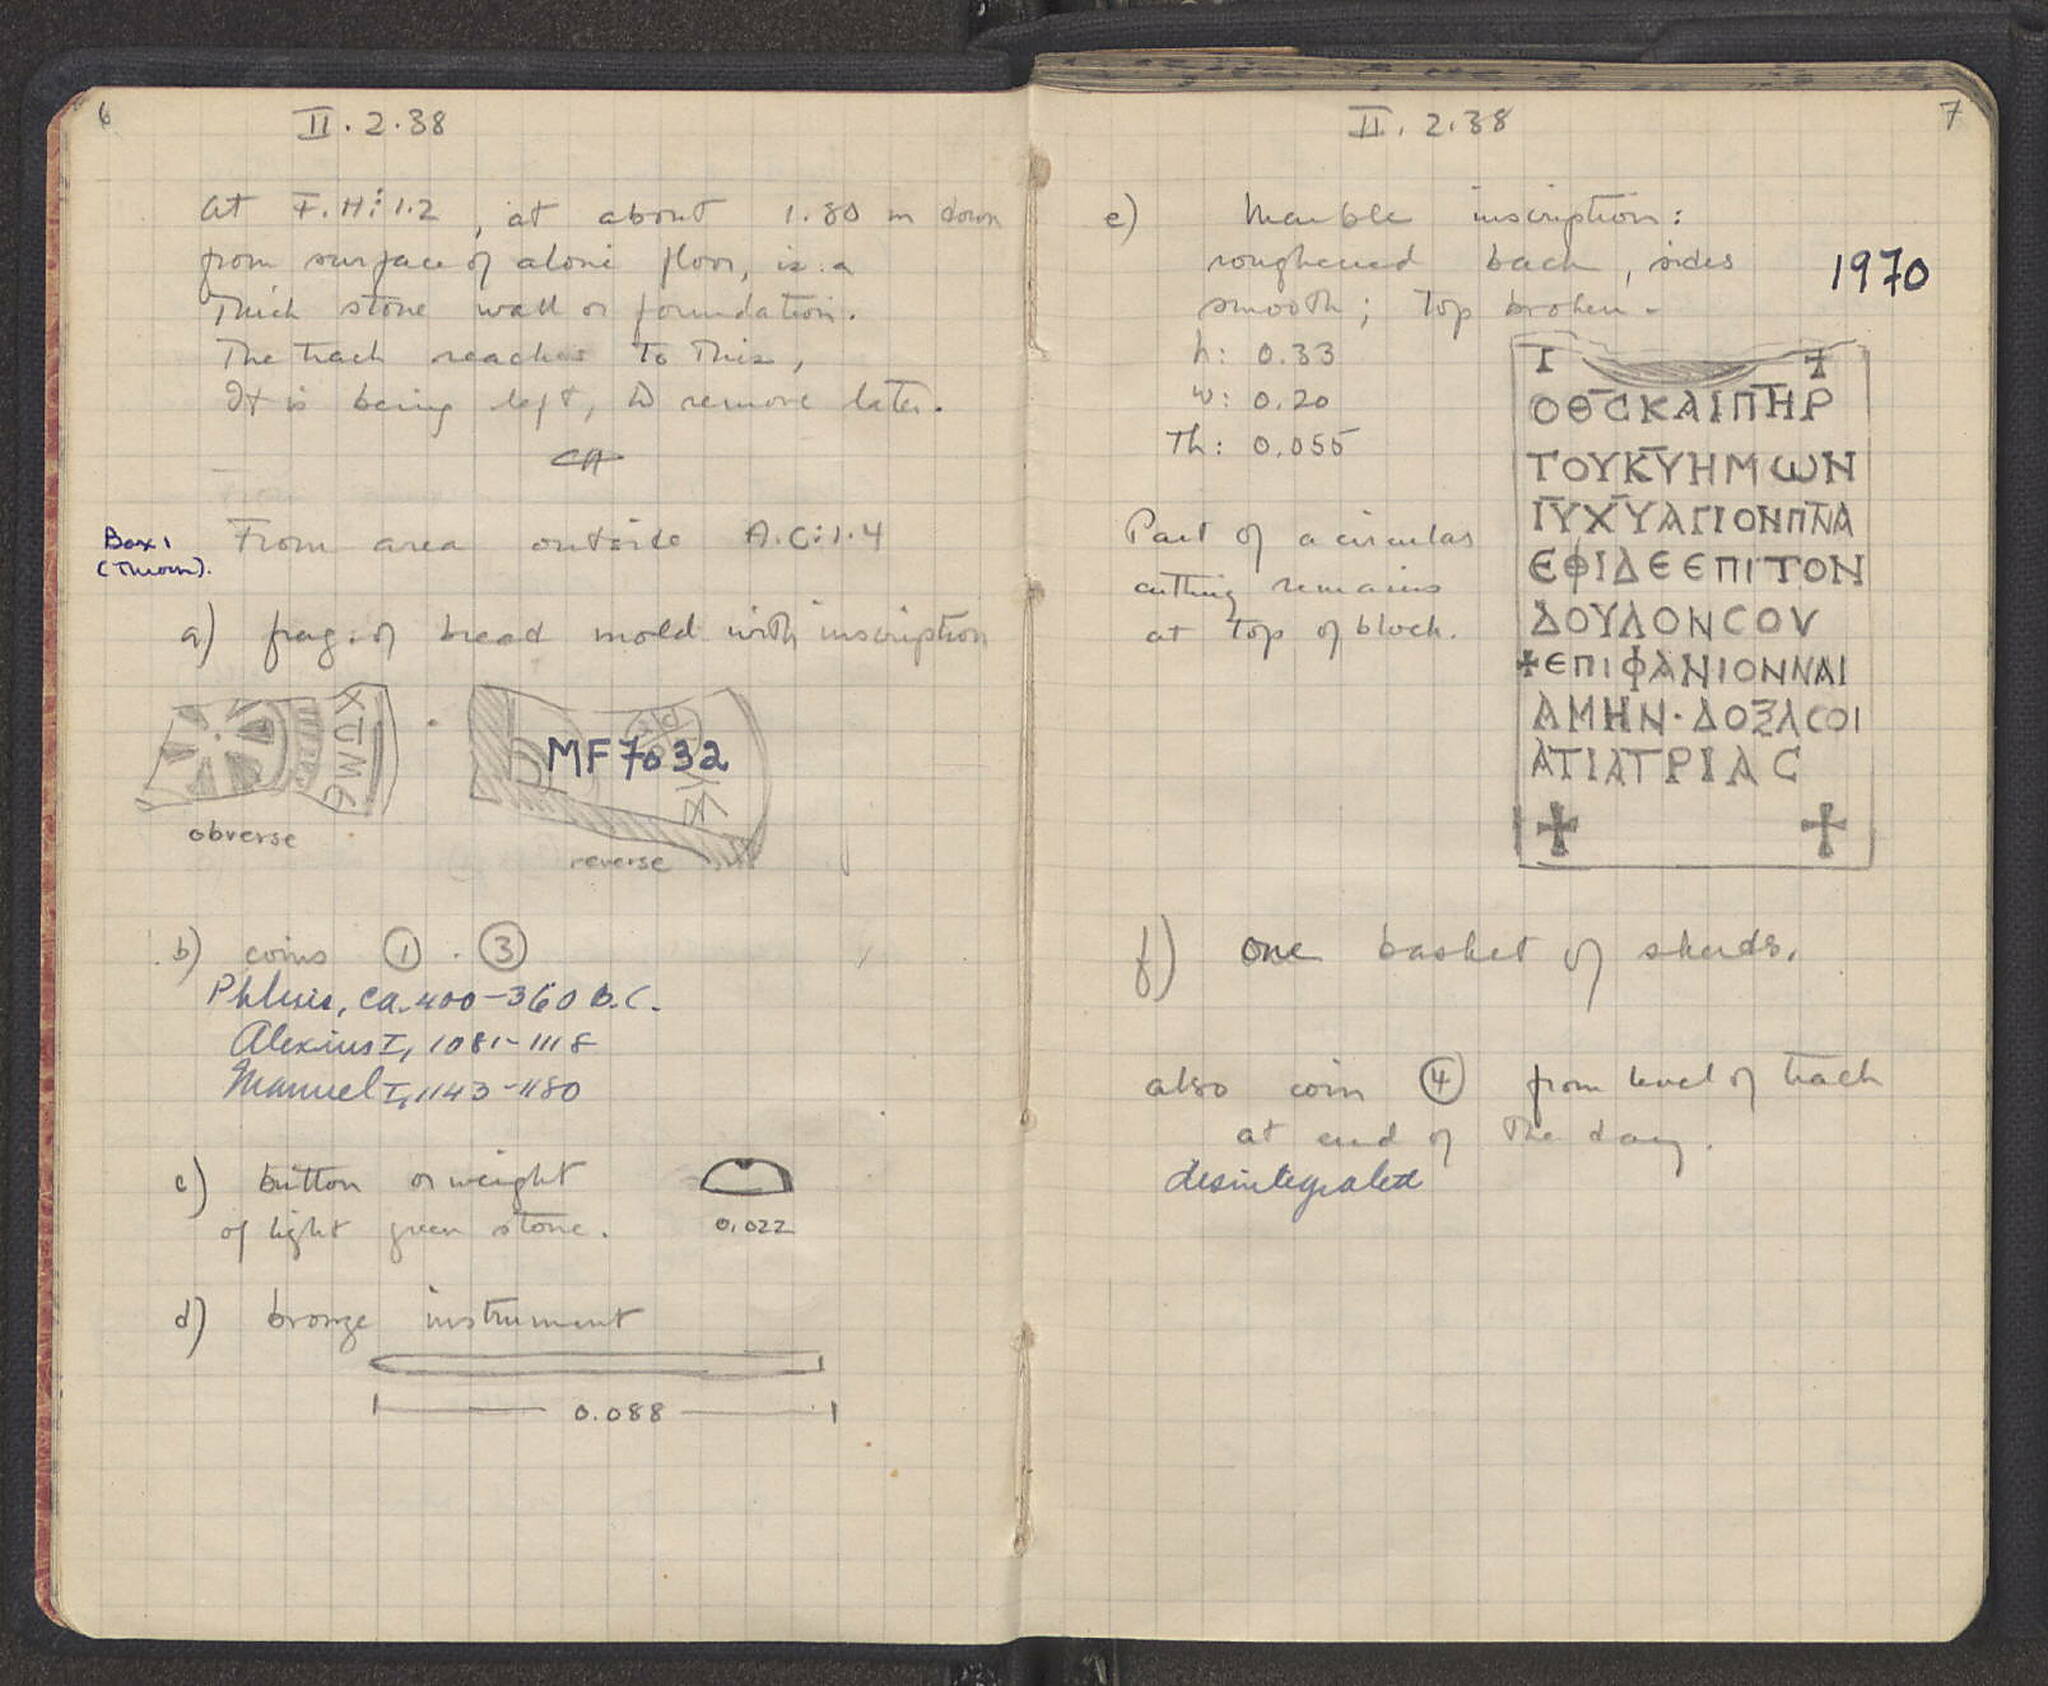 6
II.2.38
At F.H:1.2, at about 1.80 m down
from surface of aloni floor, is a
thick stone wall or foundation.
The track reaches to this,
It is being left, to remove later.
Box 1
(Thrown).
From area outside A.C:1.4
a) frag. of bread mold with inscription
MF 7032
obverse
reverse
b) coins 1 - 3
Phlius, ca. 400-360 B.C.
Alexius I, 1081-1118
Manuel I, 1143-1180
c) button or weight
of light green stone.
0.022
d) bronze instrument
0.088
II.2.38
7
e) Marble inscription:
roughened back, sides
smooth; top broken.
1970
h: 0.33
w: 0.20
Th: 0.055
Part of a circular
cutting remains
at top of block.
ΟΘCΚΑΙΠΗΡ
ΤΟΥΚΥΗΜωΝ
ΙΥΧΥΑΓΙΟΝΠΝΑ
ЄΦΙΔЄЄΠΙΤΟΝ
ΔΟΥΛΟΝCΟV
✠ЄΠΙΦΑΝΙΟΝΝΑΙ
ΑΜΗΝ·ΔΟΞΑCΟΙ
ΑΤΙΑΤΡΙΑC
✠ ✠
f) one basket of sherds.
also coin 4 from level of track
at end of the day.
desintegrated